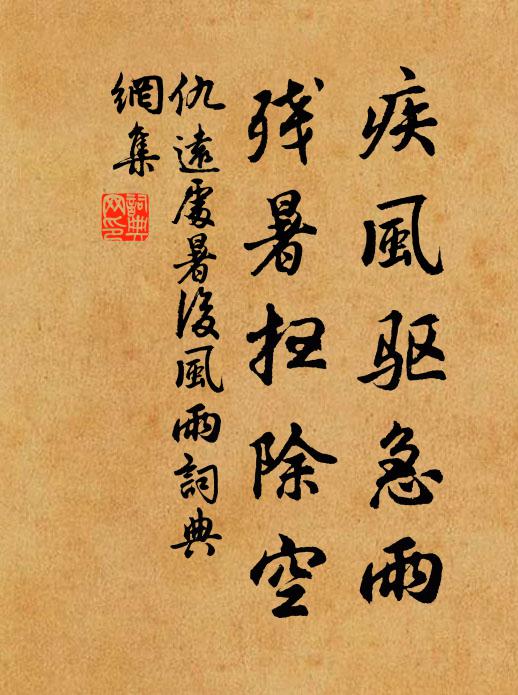 疾風驱急雨
残暑扫除空
仇遠處暑後風雨詞典
網集
詞典网印